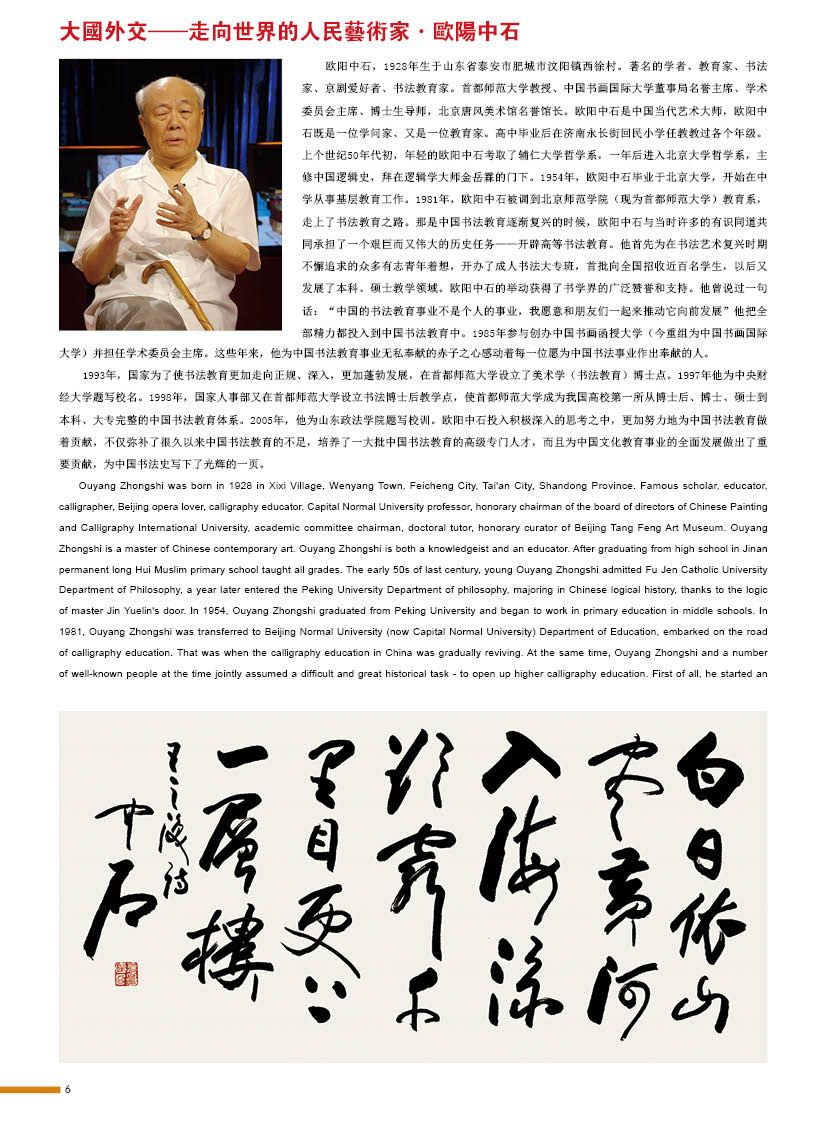 大國外交——走向世界的人民藝術家·歐陽中石
欧阳中石，1928年生于山东省泰安市肥城市汶阳镇西徐村。著名的学者、教育家、书法
家、京剧爱好者、书法教育家。首都师范大学教授、中国书画国际大学董事局名誉主席、学术
委员会主席、博士生导师，北京唐风美术馆名誉馆长。欧阳中石是中国当代艺术大师，欧阳中
石既是一位学问家、又是一位教育家。高中毕业后在济南永长街回民小学任教教过各个年级。
上个世纪50年代初，年轻的欧阳中石考取了辅仁大学哲学系，一年后进入北京大学哲学系，主
修中国逻辑史，拜在逻辑学大师金岳霖的门下。1954年，欧阳中石毕业于北京大学，开始在中
学从事基层教育工作。1981年，欧阳中石被调到北京师范学院（现为首都师范大学）教育系，
走上了书法教育之路。那是中国书法教育逐渐复兴的时候，欧阳中石与当时许多的有识同道共
同承担了一个艰巨而又伟大的历史任务——开辟高等书法教育。他首先为在书法艺术复兴时期
不懈追求的众多有志青年着想，开办了成人书法大专班，首批向全国招收近百名学生，以后又
发展了本科、硕士教学领域。欧阳中石的举动获得了书学界的广泛赞誉和支持。他曾说过一句
话：“中国的书法教育事业不是个人的事业，我愿意和朋友们一起来推动它向前发展”他把全
部精力都投入到中国书法教育中。1985年参与创办中国书画函授大学（今重组为中国书画国际
大学）并担任学术委员会主席。这些年来，他为中国书法教育事业无私奉献的赤子之心感动着每一位愿为中国书法事业作出奉献的人。
1993年，国家为了使书法教育更加走向正规、深入，更加蓬勃发展，在首都师范大学设立了美术学（书法教育）博士点。1997年他为中央财
经大学题写校名。1998年，国家人事部又在首都师范大学设立书法博士后教学点，使首都师范大学成为我国高校第一所从博士后、博士、硕士到
本科、大专完整的中国书法教育体系。2005年，他为山东政法学院题写校训。欧阳中石投入积极深入的思考之中，更加努力地为中国书法教育做
着贡献，不仅弥补了很久以来中国书法教育的不足，培养了一大批中国书法教育的高级专门人才，而且为中国文化教育事业的全面发展做出了重
要贡献，为中国书法史写下了光辉的一页。
Ouyang Zhongshi was born in 1928 in Xixi Village, Wenyang Town, Feicheng City, Tai'an City, Shandong Province. Famous scholar, educator,
calligrapher, Beijing opera lover, calligraphy educator. Capital Normal University professor, honorary chairman of the board of directors of Chinese Painting
and Calligraphy International University, academic committee chairman, doctoral tutor, honorary curator of Beijing Tang Feng Art Museum. Ouyang
Zhongshi is a master of Chinese contemporary art. Ouyang Zhongshi is both a knowledgeist and an educator. After graduating from high school in Jinan
permanent long Hui Muslim primary school taught all grades. The early 50s of last century, young Ouyang Zhongshi admitted Fu Jen Catholic University
Department of Philosophy, a year later entered the Peking University Department of philosophy, majoring in Chinese logical history, thanks to the logic
of master Jin Yuelin's door. In 1954, Ouyang Zhongshi graduated from Peking University and began to work in primary education in middle schools. In
1981, Ouyang Zhongshi was transferred to Beijing Normal University (now Capital Normal University) Department of Education, embarked on the road
of calligraphy education. That was when the calligraphy education in China was gradually reviving. At the same time, Ouyang Zhongshi and a number
of well-known people at the time jointly assumed a difficult and great historical task - to open up higher calligraphy education. First of all, he started an
白日依山
尽黄河
入海流
欲窮千
里目更上
一層樓
王之渙诗
中石
6